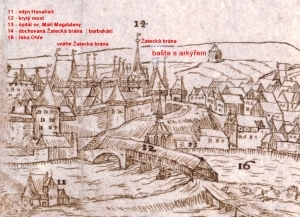 11 - mlýn Hasačert
12 - krytý most
13 - špitál sv. Máří Magdaleny
14 - dochovaná Žatecká brána ( barbakán)
16 - řeka Ohře
14
vnitřní Žatecká brána
Žatecká brána
bašta s arkýřem
12
16
11